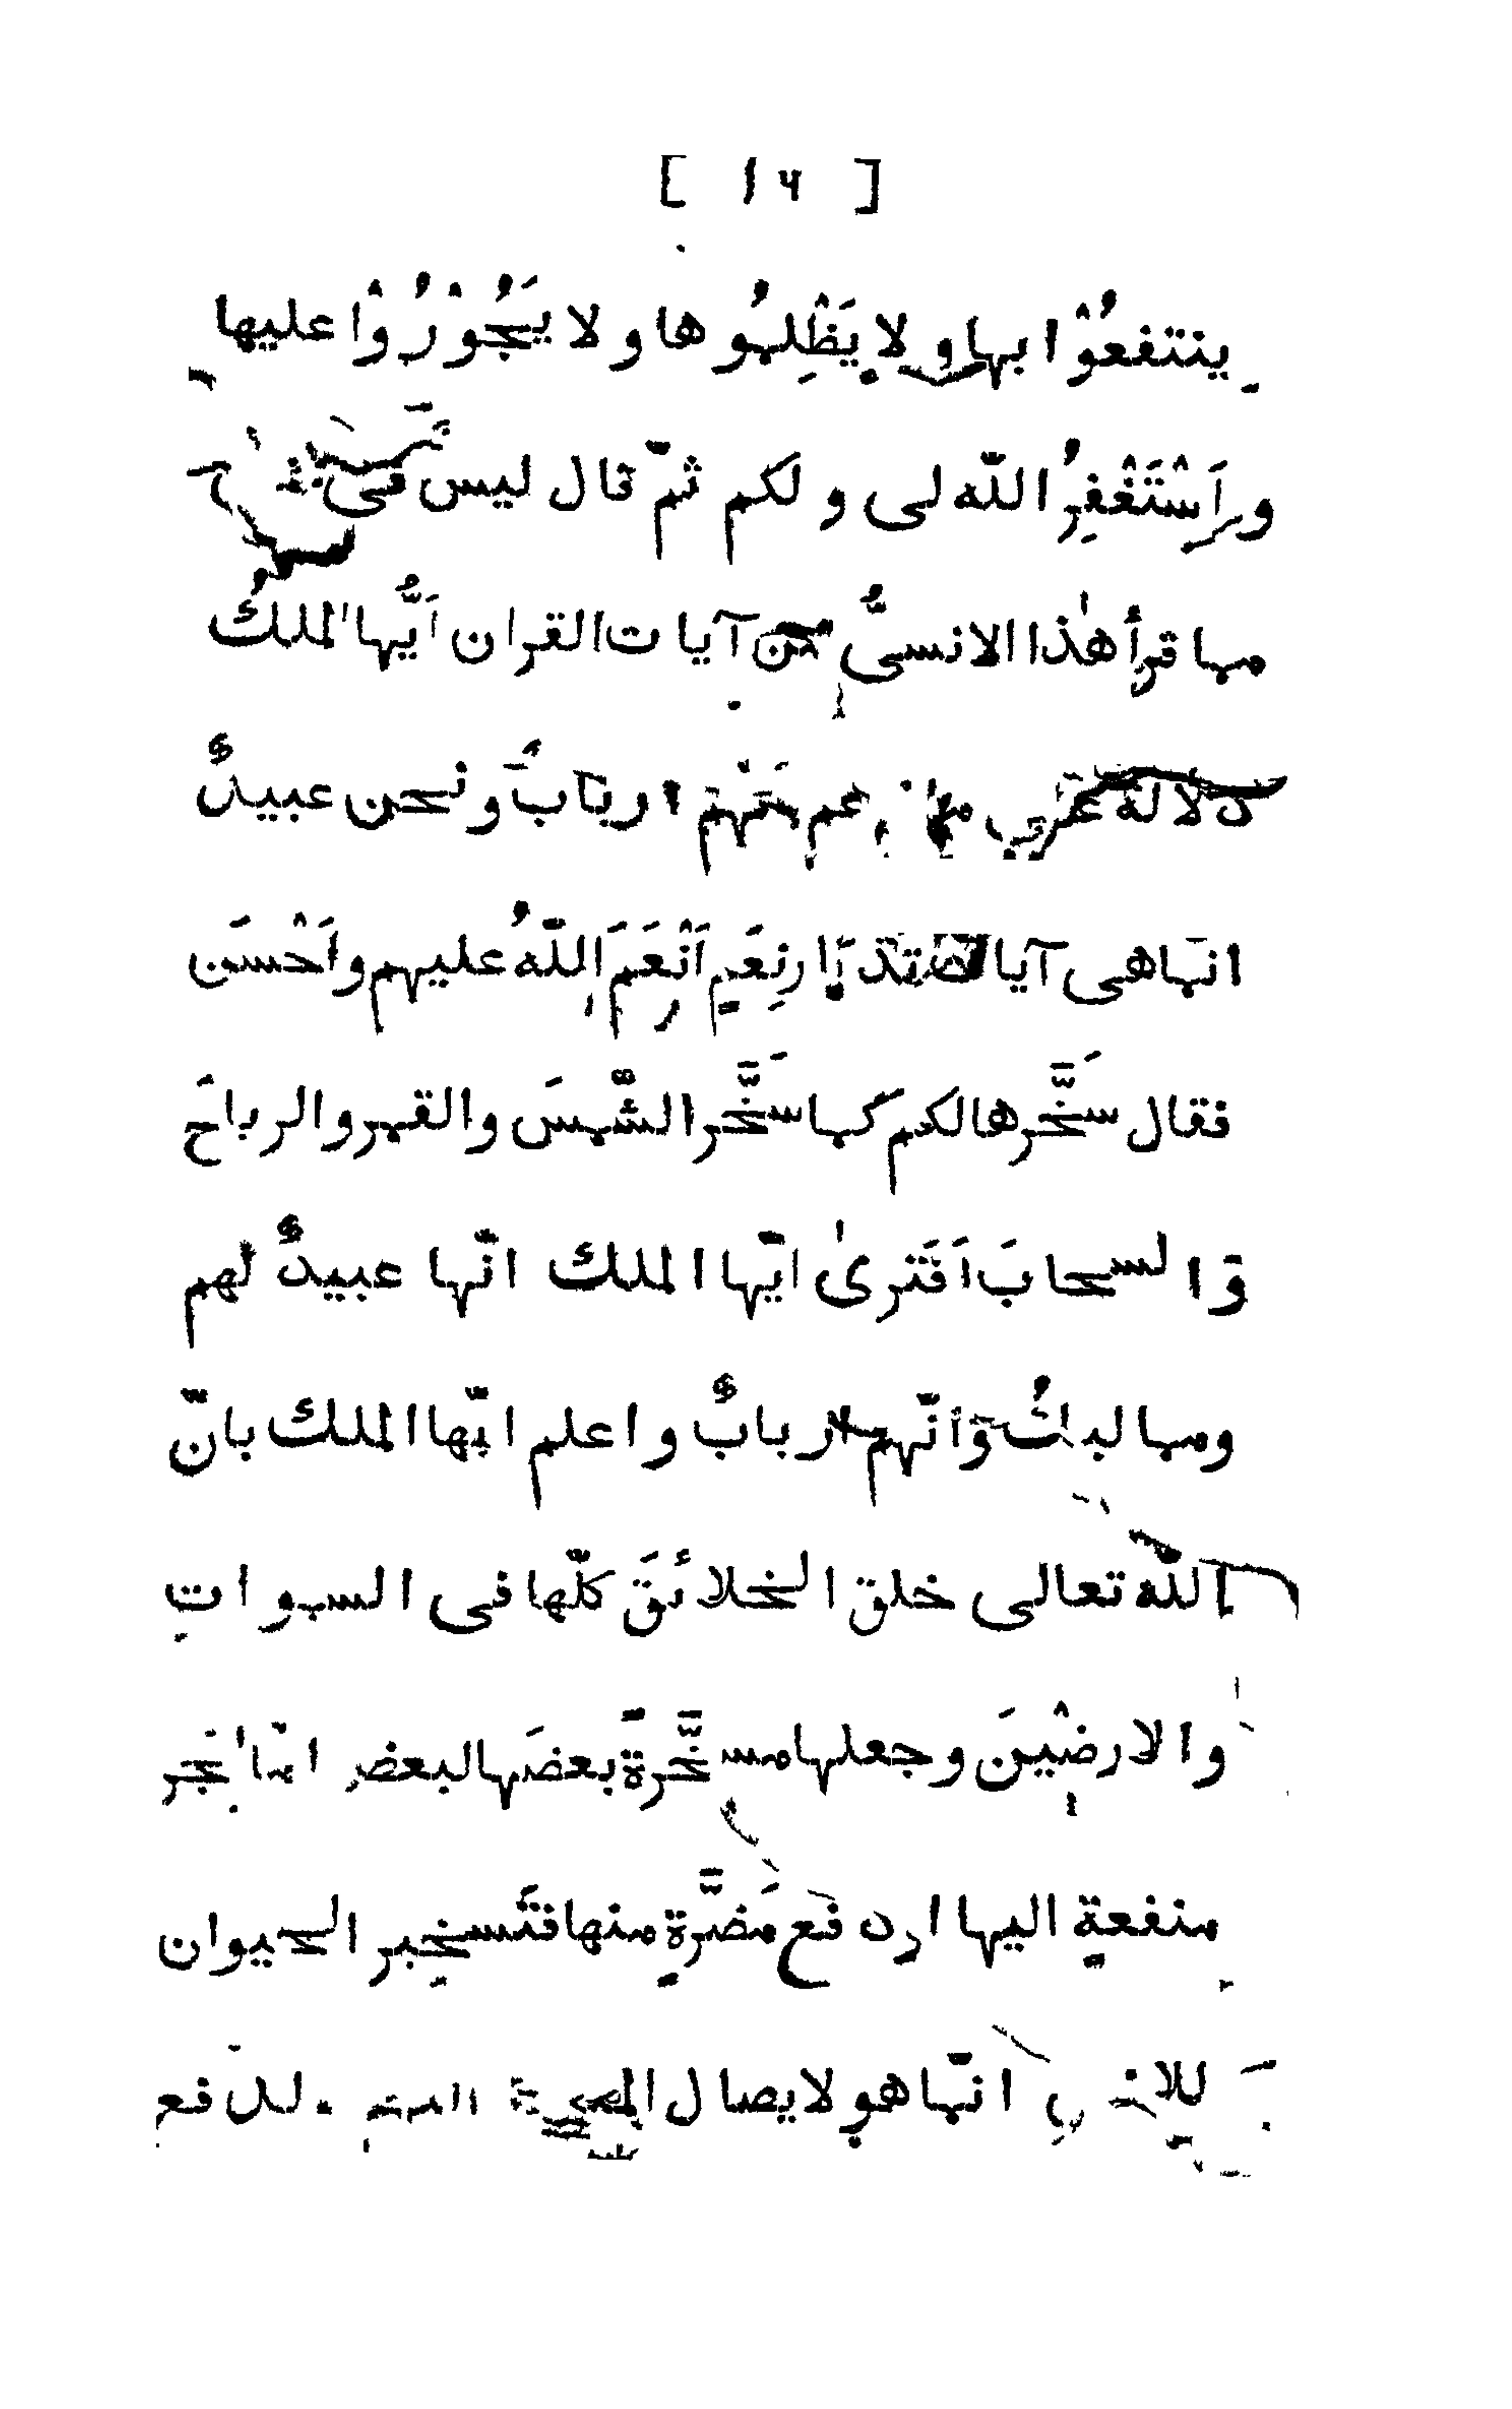 [ ۱۴ ]
ينتفعُوْا بها و لا يَظْلِمُوها و لا يَجُوْرُوْا عليها
و اَسْتَغْفِرُ اللّه لى و لكم ثمّ قال ليس فى
مما قرأ هٰذا الانسىُّ من آيات القران اَيُّها الملكُ
دلالة على اربابٌ و نحن عبيدٌ
انما هى آيات نِعَمٍ اَنْعَمَ اللّهُ عليهم و اَحْسَن
فقال سَخَّرها لكم كما سَخَّر الشّمسَ والقمر والرياحَ
وَ السحابَ اَفَترىٰ ايّها الملك انّها عبيدٌ لهم
ومماليكُ وَ اَنّهم اربابٌ و اعلم ايّها الملك بانّ
اللّه تعالى خلق الخلائقَ كلّها فى السموات
والارضْيِنَ وجعلها مسخَّرةً بعضَها لبعض امّا لجر
منفعةٍ اليها او دفع مَضرَّةٍ منها فتَسخير الحيوان
انّما هو لايصال لدفع